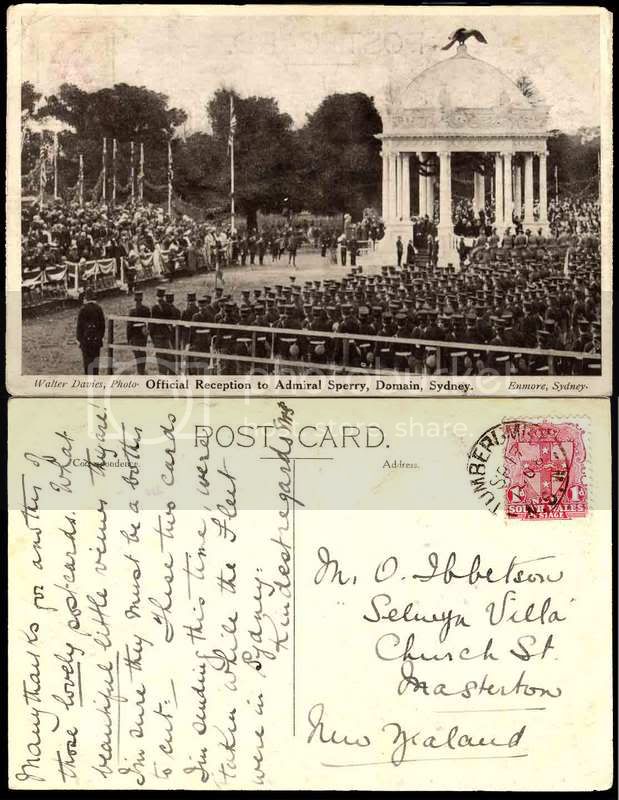 Walter Davies, Photo. Official Reception to Admiral Sperry, Domain, Sydney. Enmore, Sydney.
POST CARD.
Correspondence.
Address.
Many thanks for another of
those lovely postcards. What
beautiful little views they are.
I'm sure they must be a bother
to cut. These two cards
I'm sending this time, were
taken while the Fleet
were in Sydney.
Kindest regards
TUMBERUMBA
N.S.W
SOUTH WALES
POSTAGE
1D
M. O. Ibbetson
Selwyn Villa
Church St.
Masterton
New Zealand
photobucket
host. store. share.